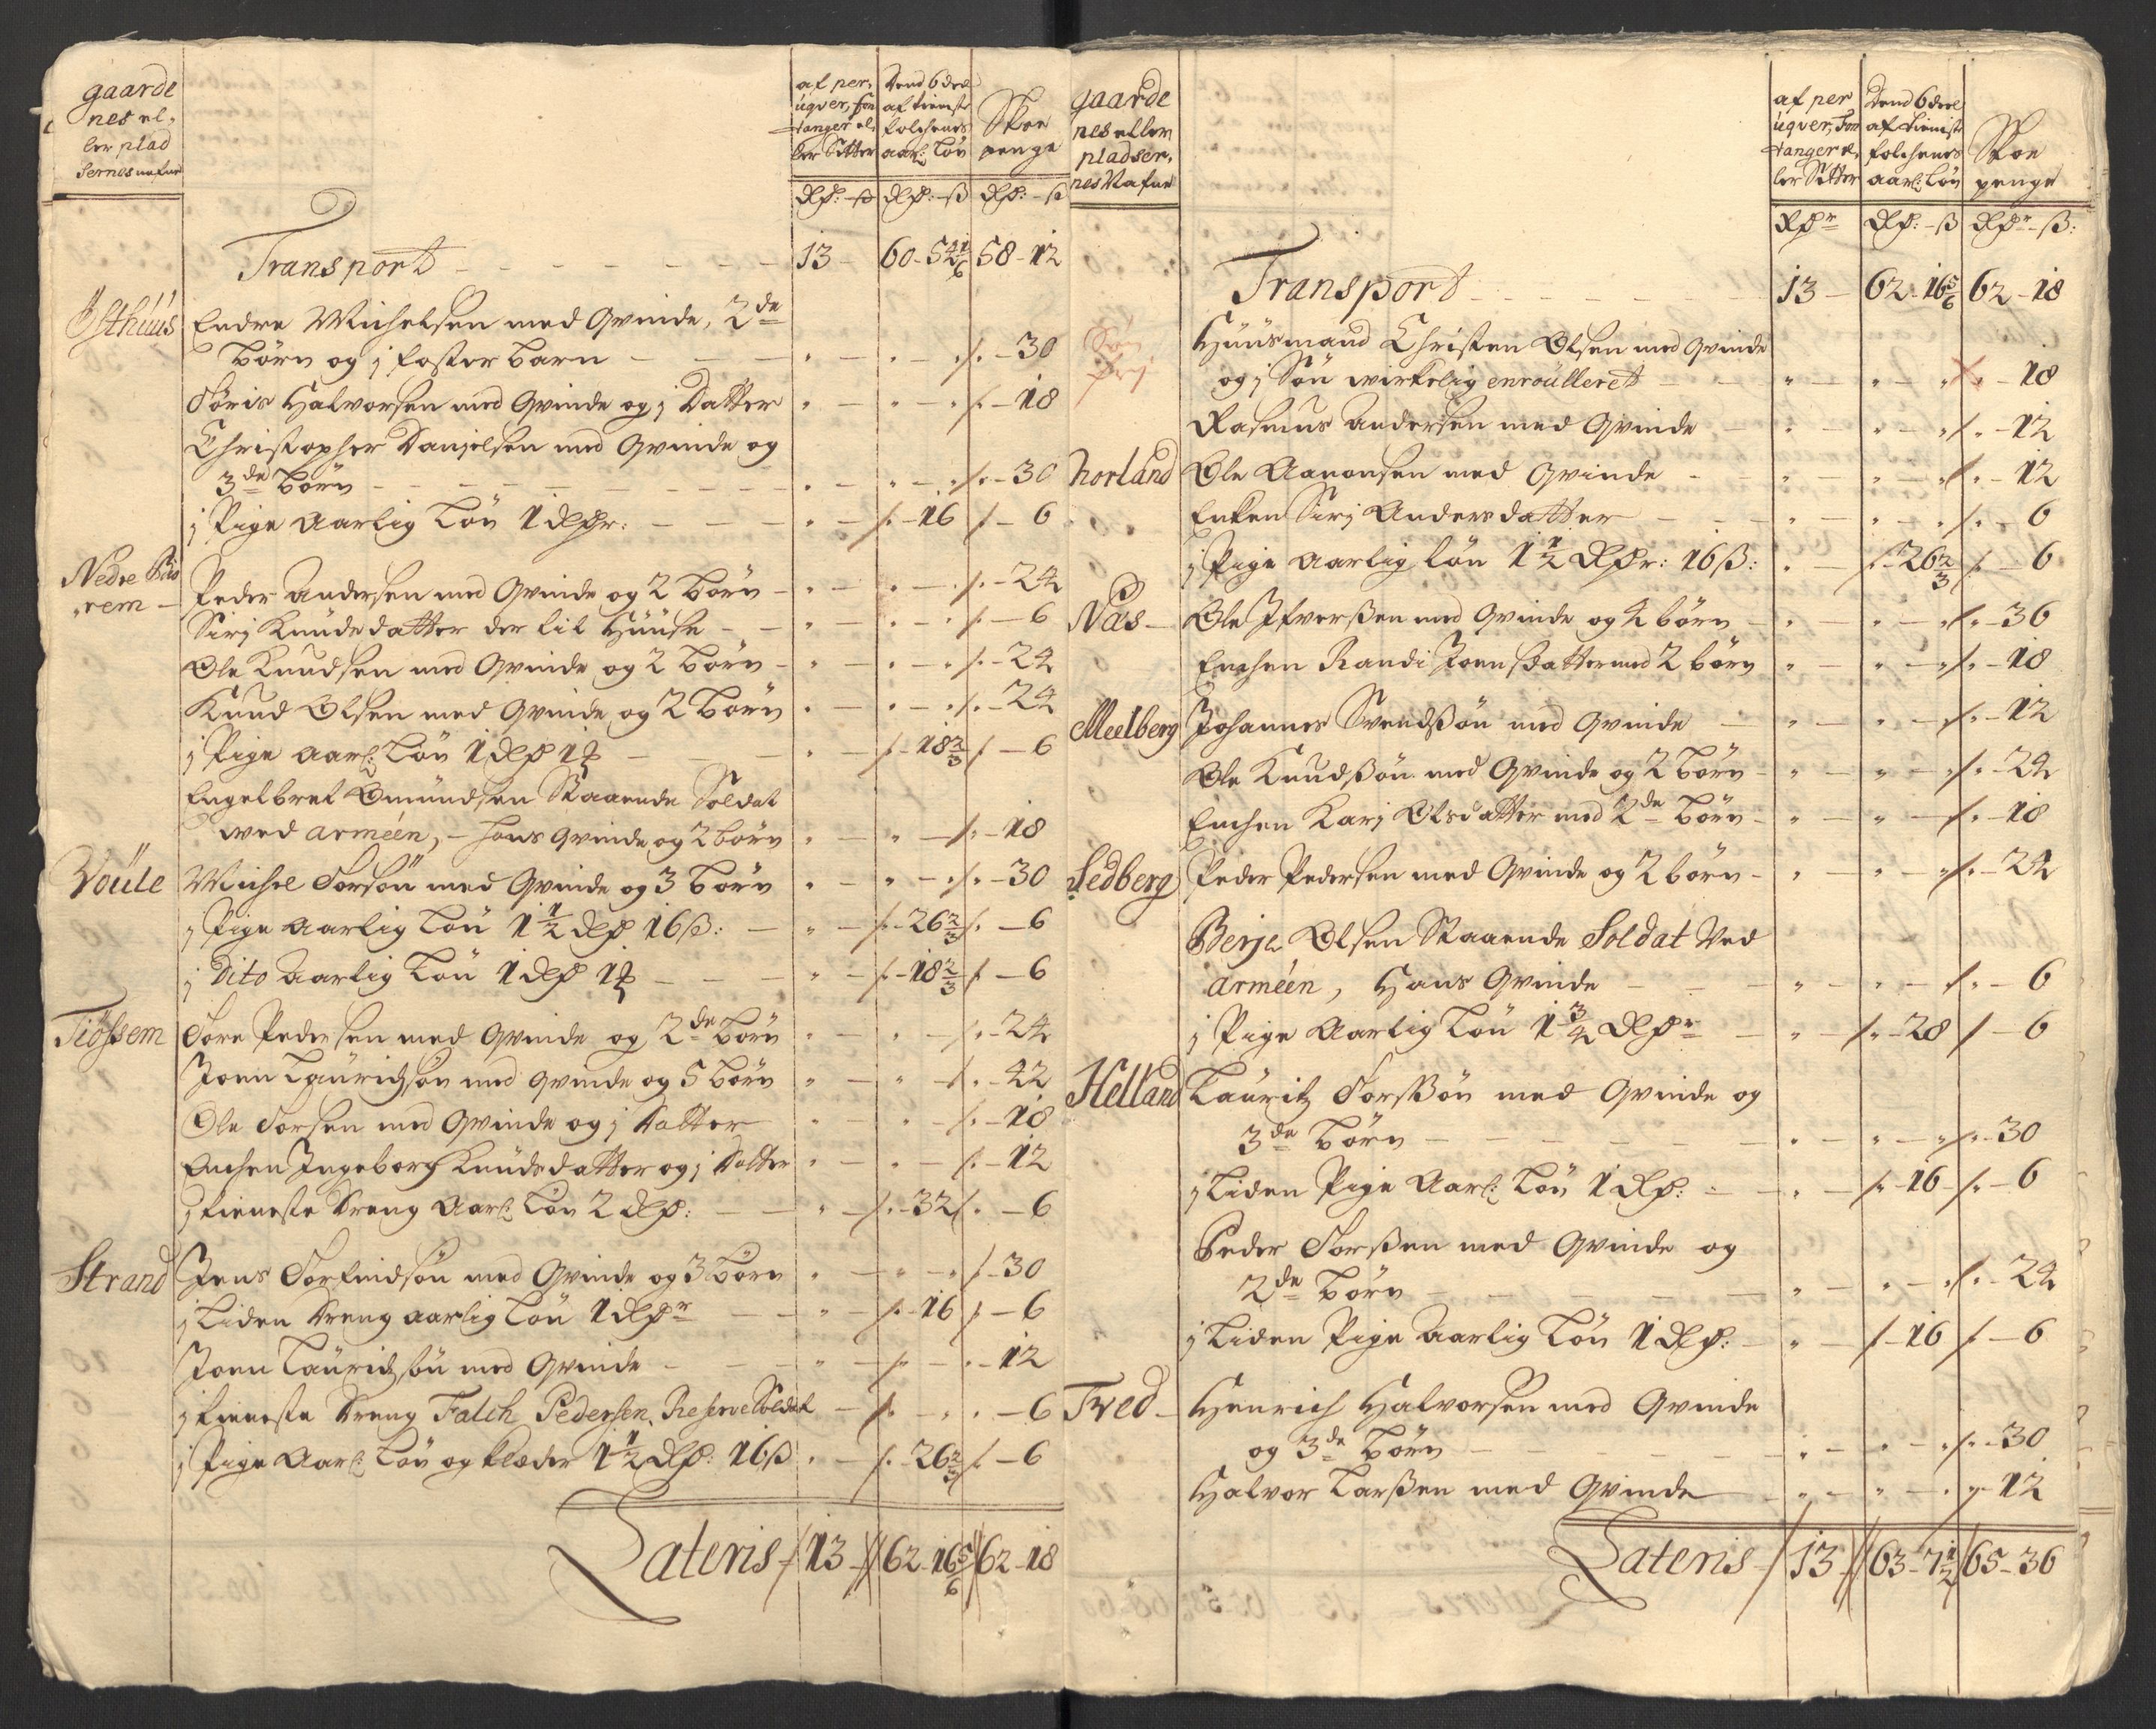 gaarde
nes el-
ler plad
sernes nafne
af per-
uqver, fon
tanger el-
ler Setter
Dend 6 deel
af tieniste
folchenes
aarl: Løn
Skoe
penge
Rdr: - ß Rdr: - ß Rdr: - ß
Transport - 13 - 60 - 54 1/6 58 - 12
Østhuus Endre Michelsen med Qvinde, 2de
børn og j foster barn - 30
Siøris Halvorsen med Qvinde og j Datter - 18
Christopher Danielsen med Qvinde og
3de børn - 30
j Pige Aarlig Løn 1 Rdr: - 16 - 6
Nedre
rem - Peder Andersen med Qvinde og 2 børn - 24
Sirj Knudsdatter der til Huuse - 6
Ole Knudsen med Qvinde og 2 børn - 24
Knud Olsen med Qvinde og 2 børn - 24
j Pige aarl: Løn 1 Rd 1 - 18 2/3 - 6
Engelbret Omundsen Staaende Soldat
ved arméen, - hans Qvinde og 2 børn - 18
Voule Michel Torsøn med Qvinde og 3 børn - 30
j Pige aarlig Løn 1 1/2 Rd 16 ß: - 26 2/3 - 6
j Dito aarlig Løn 1 Rd 1 - 18 2/3 - 6
Tiøssem Tore Pedersen med Qvinde og 2de børn - 24
Joen Lauridsøn med Qvinde og 5 børn - 42
Ole Torsen med Qvinde og j Datter - 18
Enchen Ingeborg Knudsdatter og j Datter - 12
j tieneste Dreng Aarl: Løn 2 Rd: - 32 - 6
Strand Jens Torfindsøn med Qvinde og 3 børn - 30
j Liden Dreng aarlig Løn 1 Rdr - 16 - 6
Joen Lauridsøn med Qvinde - 12
j tieneste Dreng Falch Pedersen, Reserve Soldat - 6
j Pige Aarl: Løn og klæder 1 1/2 Rd: 16 ß - 26 2/3 - 6
Lateris - 13 - 62 - 16 5/6 62 - 18
gaarde
nes eller
pladser-
nes Nafne
af per
uqver, fon
tanger el-
ler Setter
Dend 6 deel
af tienist
folchenes
aarl: Løn
Skoe
penge
Rdr Rdr: - ß Rdr - ß:
Transport - 13 - 62 - 16 5/6 62 - 18
Huusmand Christen Olsen med Qvinde
og j Søn wirkelig enroulleret - 18
Søn
frj
Rasmus Andersen med Qvinde - 12
Norland Ole Aanonsen med Qvinde - 12
Enken Sirj Andersdatter - 6
j Pige Aarlig Løn 1 1/2 Rdr: 16 ß: - 26 2/3 - 6
Næs - Ole Ifverßen med Qvinde og 4 børn - 36
Enchen Randi Joensdatter med 2 børn - 18
Meelberg Johannes Svendßøn med Qvinde - 12
Ole Knudßøn med Qvinde og 2 børn - 24
Enchen Karj Olsdatter med 2de børn - 18
Sedberg Peder Pedersen med Qvinde og 2 børn - 24
Berje Olsen Staaende Soldat Ved
arméen, Hans Qvinde - 6
j Pige Aarlig Løn 1 3/4 Rdr - 28 - 6
Helland Lauritz Torßøn med Qvinde og
3de børn - 30
j Liden Pige Aarl: Løn 1 Rd: - 16 - 6
Peder Torßen med Qvinde og
2de børn - 24
j Liden Pige Aarlig Løn 1 Rd: - 16 - 6
Tved - Henrich Halvorsen med Qvinde
og 3de børn - 30
Halvor Larßen med Qvinde - 12
Lateris - 13 - 63 - 7 1/2 65 - 36